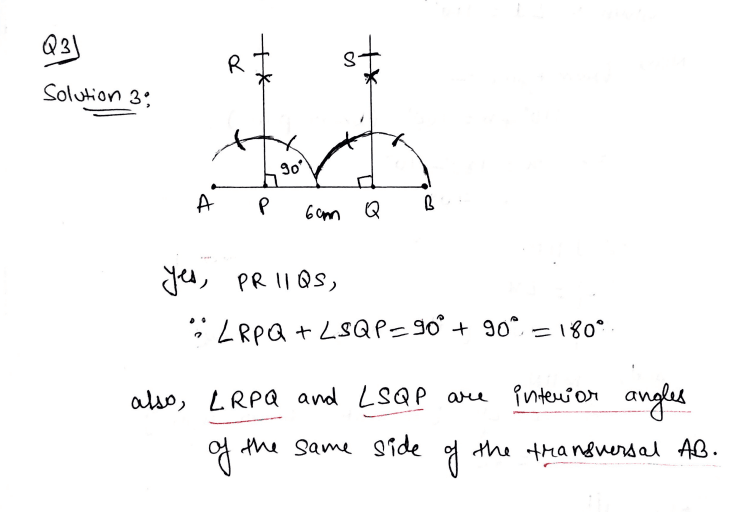 Q3)
Solution 3:
R S
90°
A P 6cm Q B
Yes, PR || QS,
∵ ∠RPQ + ∠SQP = 90° + 90° = 180°.
also, ∠RPQ and ∠SQP are interior angles
of the same side of the transversal AB.